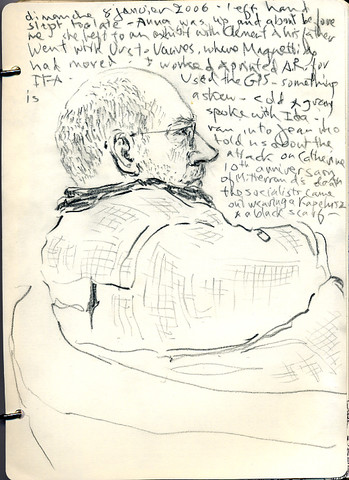 dimanche 8 janvier 2006 - left hand
slept too late - Anna was up and about before
me. She left to an exhibit with Clement & his father
Went with to - Vanves, where Magnetti
had moved. I worked & printed AR for
IFA. Used the GPS - something
is askew - cold & grey
spoke with Ida - I
ran into Joan who
told us about the
attack on Catherine
10th anniversary
of Mitterrand's death
the socialists came
out wearing a
& a black scarf -